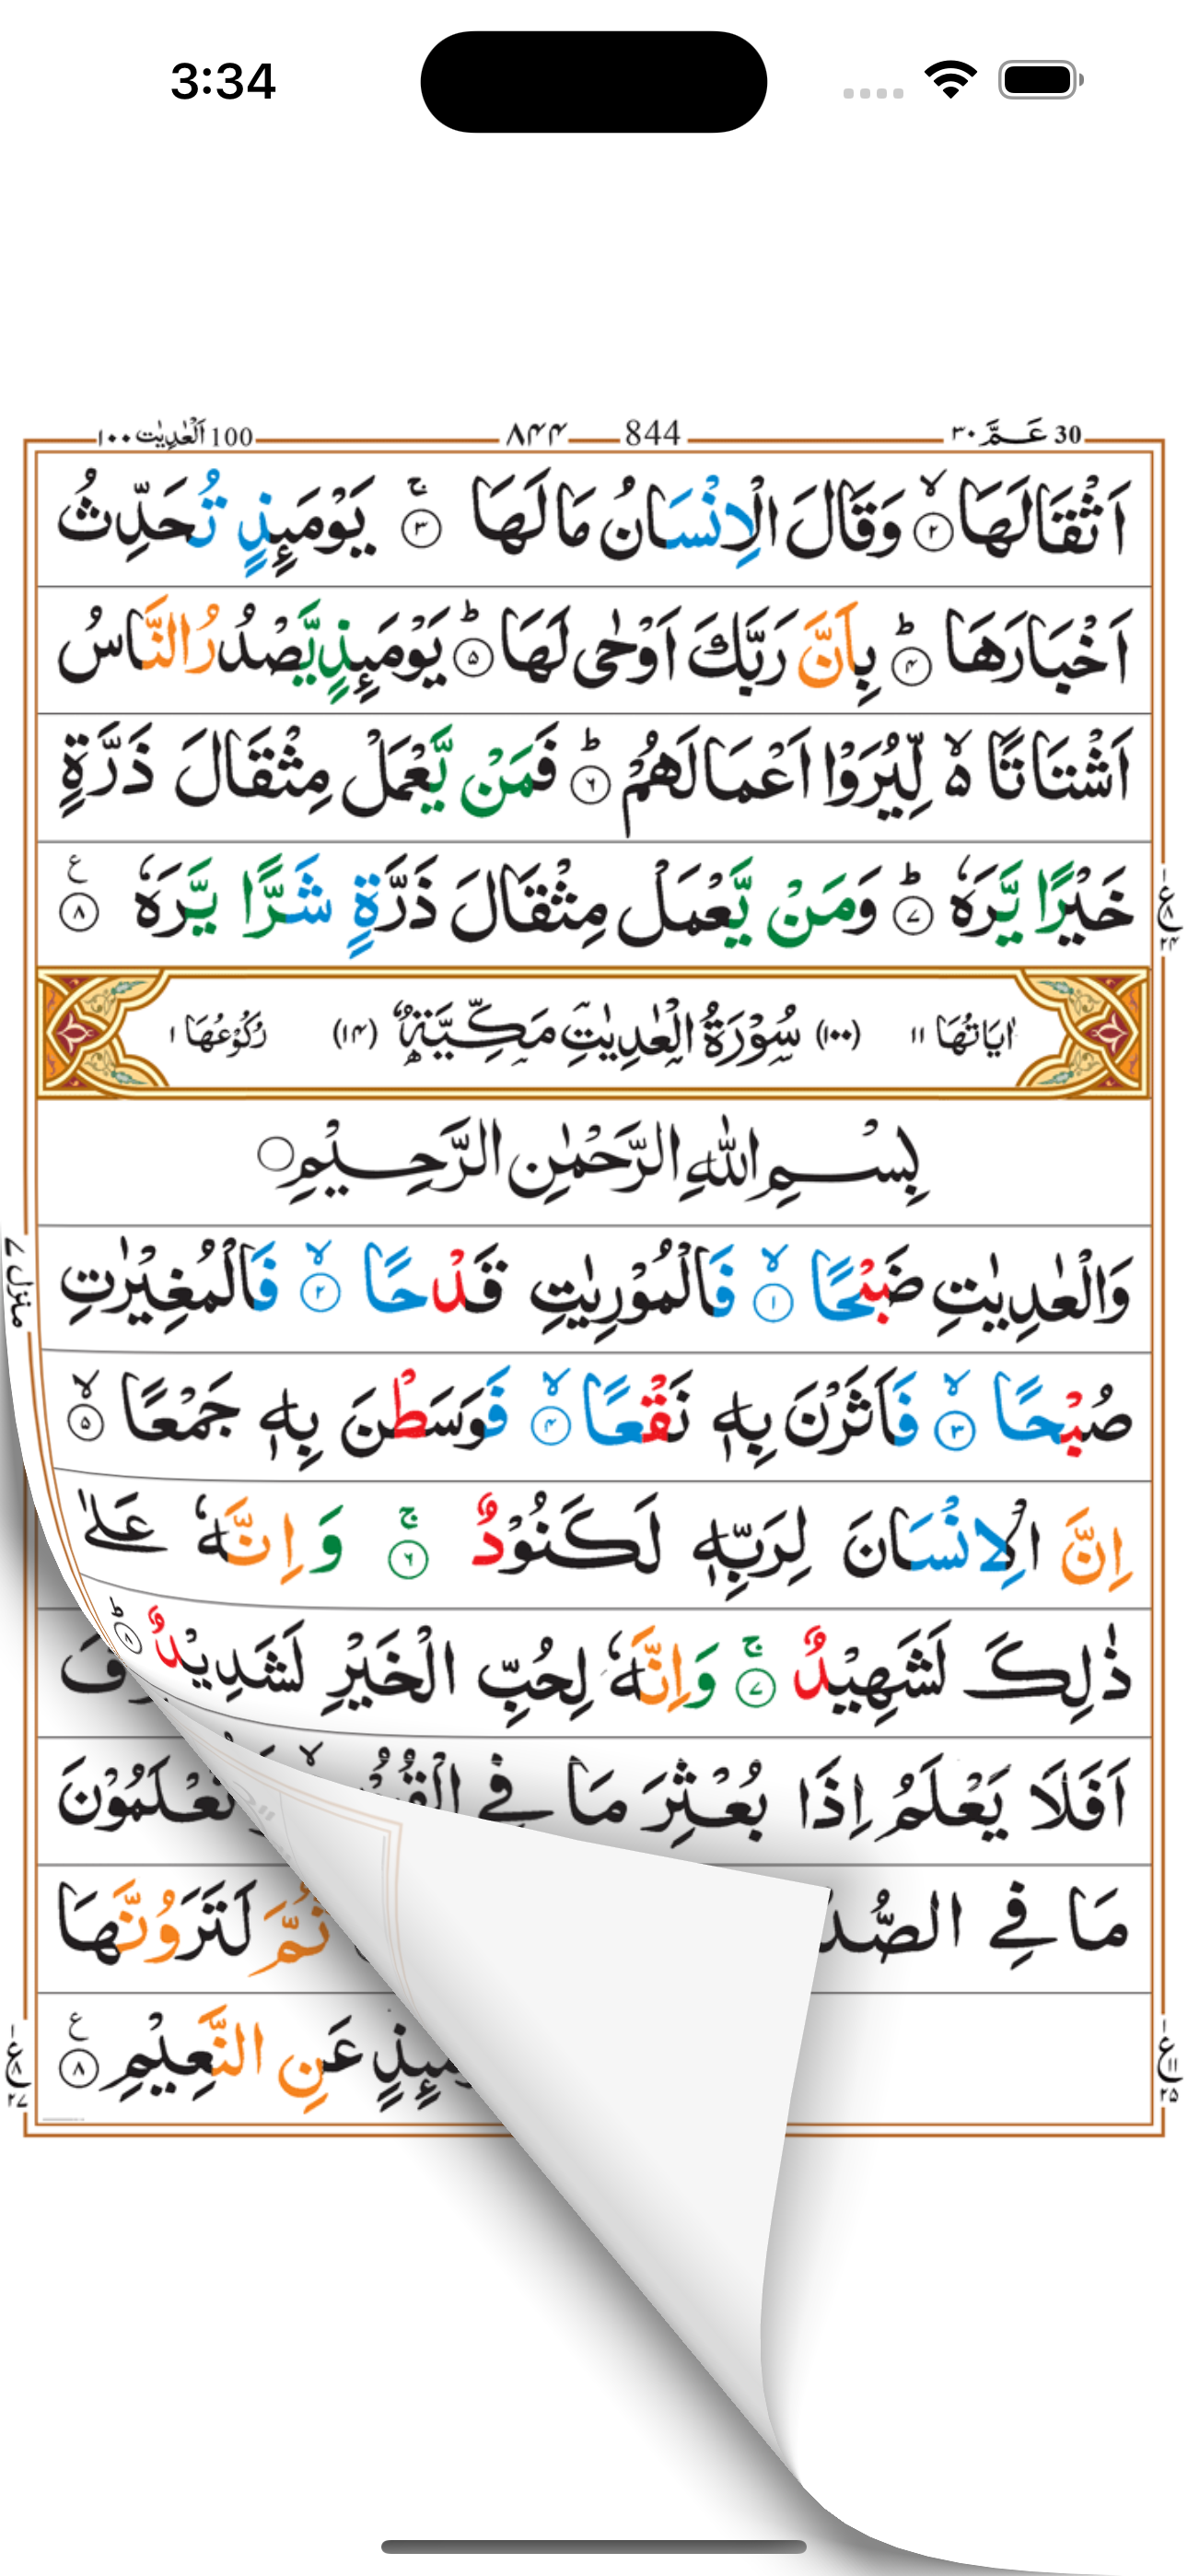 3:34
30 عَـمَّ ٣٠
844 ۸۴۴
100 اَلْعٰدِيٰت ۱۰۰
اَثْقَالَهَا ۙ﴿۲﴾ وَقَالَ الْاِنْسَانُ مَا لَهَا ۚ﴿۳﴾ يَوْمَىِٕذٍ تُحَدِّثُ
اَخْبَارَهَا ؕ﴿۴﴾ بِاَنَّ رَبَّكَ اَوْحٰى لَهَا ؕ﴿۵﴾ يَوْمَىِٕذٍ يَّصْدُرُ النَّاسُ
اَشْتَاتًا ۙ۬ لِّيُرَوْا اَعْمَالَهُمْ ؕ﴿۶﴾ فَمَنْ يَّعْمَلْ مِثْقَالَ ذَرَّةٍ
خَيْرًا يَّرَهٗ ؕ﴿۷﴾ وَمَنْ يَّعْمَلْ مِثْقَالَ ذَرَّةٍ شَرًّا يَّرَهٗ ﴿۸﴾ ع
ع ۸ ۲۴
اٰيَاتُهَا ۱۱ (۱۰۰) سُوْرَةُ الْعٰدِيٰتِ مَكِّيَّةٌ (۱۴) رُكُوْعُهَا ۱
بِسْمِ اللّٰهِ الرَّحْمٰنِ الرَّحِيْمِ
وَالْعٰدِيٰتِ ضَبْحًا ۙ﴿۱﴾ فَالْمُوْرِيٰتِ قَدْحًا ۙ﴿۲﴾ فَالْمُغِيْرٰتِ
منزل ۷
صُبْحًا ۙ﴿۳﴾ فَاَثَرْنَ بِهٖ نَقْعًا ۙ﴿۴﴾ فَوَسَطْنَ بِهٖ جَمْعًا ۙ﴿۵﴾
اِنَّ الْاِنْسَانَ لِرَبِّهٖ لَكَنُوْدٌ ۚ﴿۶﴾ وَاِنَّهٗ عَلٰى
ذٰلِكَ لَشَهِيْدٌ ۚ﴿۷﴾ وَاِنَّهٗ لِحُبِّ الْخَيْرِ لَشَدِيْدٌ ؕ﴿۸﴾
اَفَلَا يَعْلَمُ اِذَا بُعْثِرَ مَا فِي تَعْلَمُوْنَ
مَا فِي ثُمَّ لَتَرَوُنَّهَا
عَنِ النَّعِيْمِ ﴿۸﴾ ع
ع ۱۱ ۲۵
ع ۸ ۲۷